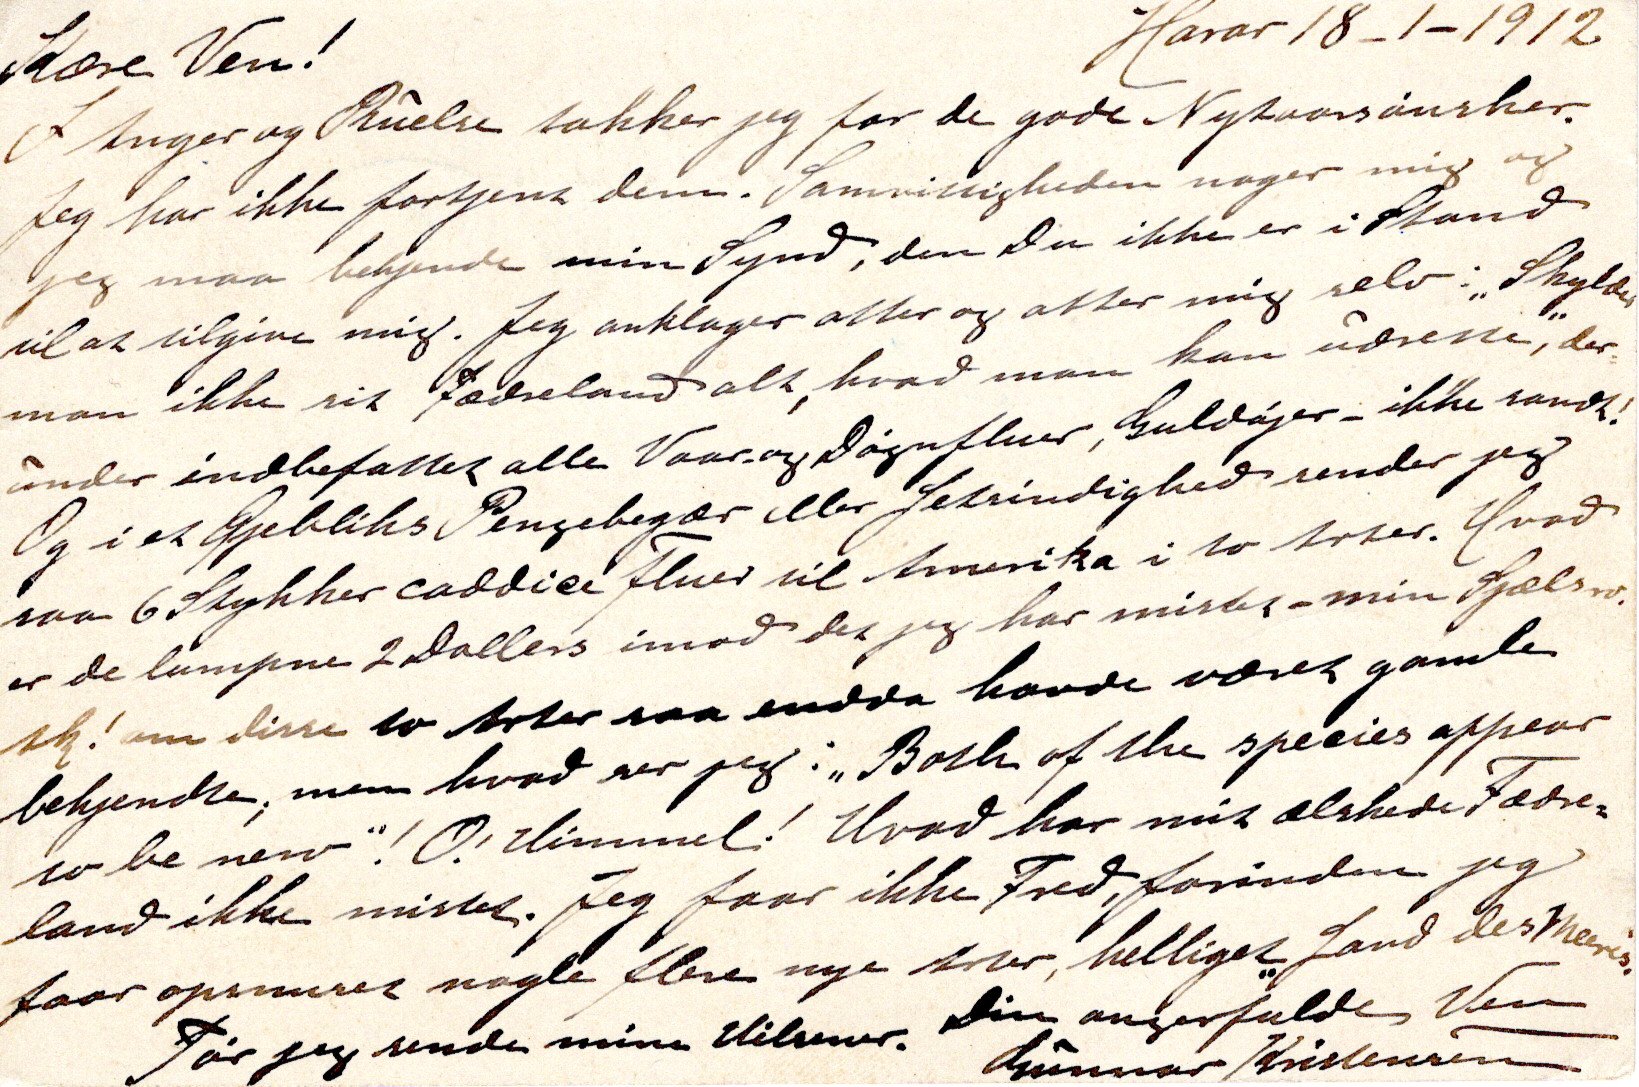 Harar 18-1-1912
Kære Ven!
I Anger og Ruelse takker jeg for de gode Nytaarsönsker.
Jeg har ikke fortjent dem. Samvittigheden nager mig og
jeg maa bekjende min Synd, den Du ikke er i Stand
til at tilgive mig. Jeg anklager atter og atter mig selv: „Skylder
man ikke sit Fædreland alt, hvad man kan udrette“, der-
under indbefattet alle Vaar- og Dögnfluer, Guldöjer - ikke sandt!
Og i et Øjebliks Pengebegær eller Letsindighed sender jeg
saa 6 Stykker caddice Fluer til Amerika i to Arter. Hvad
er de lumpne 2 Dollers imod det jeg har mistet - min Sjælsro.
Ak! om disse to Arter saa endda havde været gamle
bekjendte, men hvad ser jeg: „Both of the species appear
to be new“! O! Himmel! Hvad har mit elskede Fædre=
land ikke mistet. Jeg faar ikke Fred, forinden jeg
faar opsnuset nogle flere nye Arter, helliget „Land des Meeres.
Tör jeg sende mine Hilsener. Din angerfulde Ven
Gunnar Kristensen